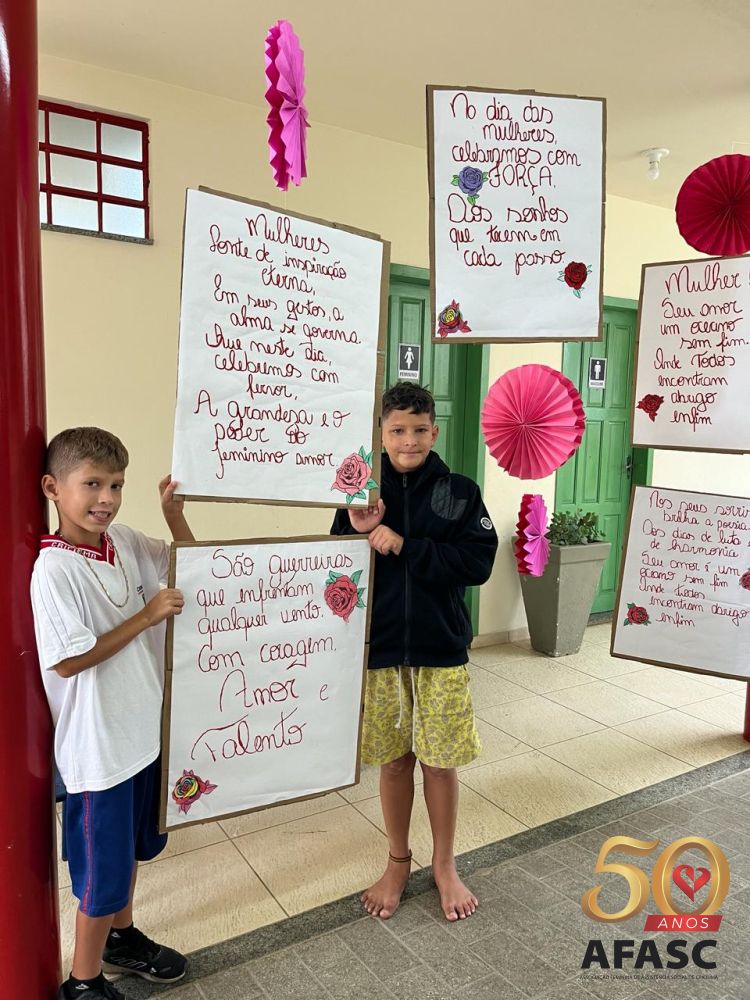 No dia das
mulheres,
celebramos com
FORÇA.
Aos sonhos
que tecem em
cada passo
Mulheres
fonte de inspiração
eterna,
Em seus gestos, a
alma se governa.
Que neste dia,
celebremos com
fervor,
A grandesa e o
poder do
feminino amor.
São guerreiras
que enfrentam
qualquer vento.
Com coragem.
Amor e
Talento
Mulher
Seu amor
um oceano
sem fim.
Onde Todos
encontram
abrigo
enfim
Nos seus sorri
brilha a poesia
Aos dias de luta
de harmonia
Seu amor é um
oceano sem fim
Onde todos
encontram abrigo
enfim
FEMININO
MASCULINO
CRICIÚMA
50
ANOS
AFASC
ASSOCIAÇÃO FEMININA DE ASSISTÊNCIA SOCIAL DE CRICIÚMA